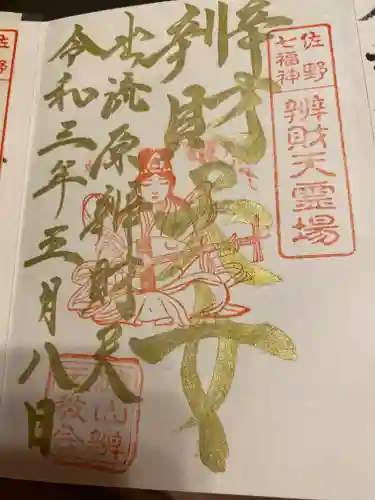 佐野
七福神
辨財天霊場
辨財天
出流原辨財天
令和三年三月八日
佐野
七